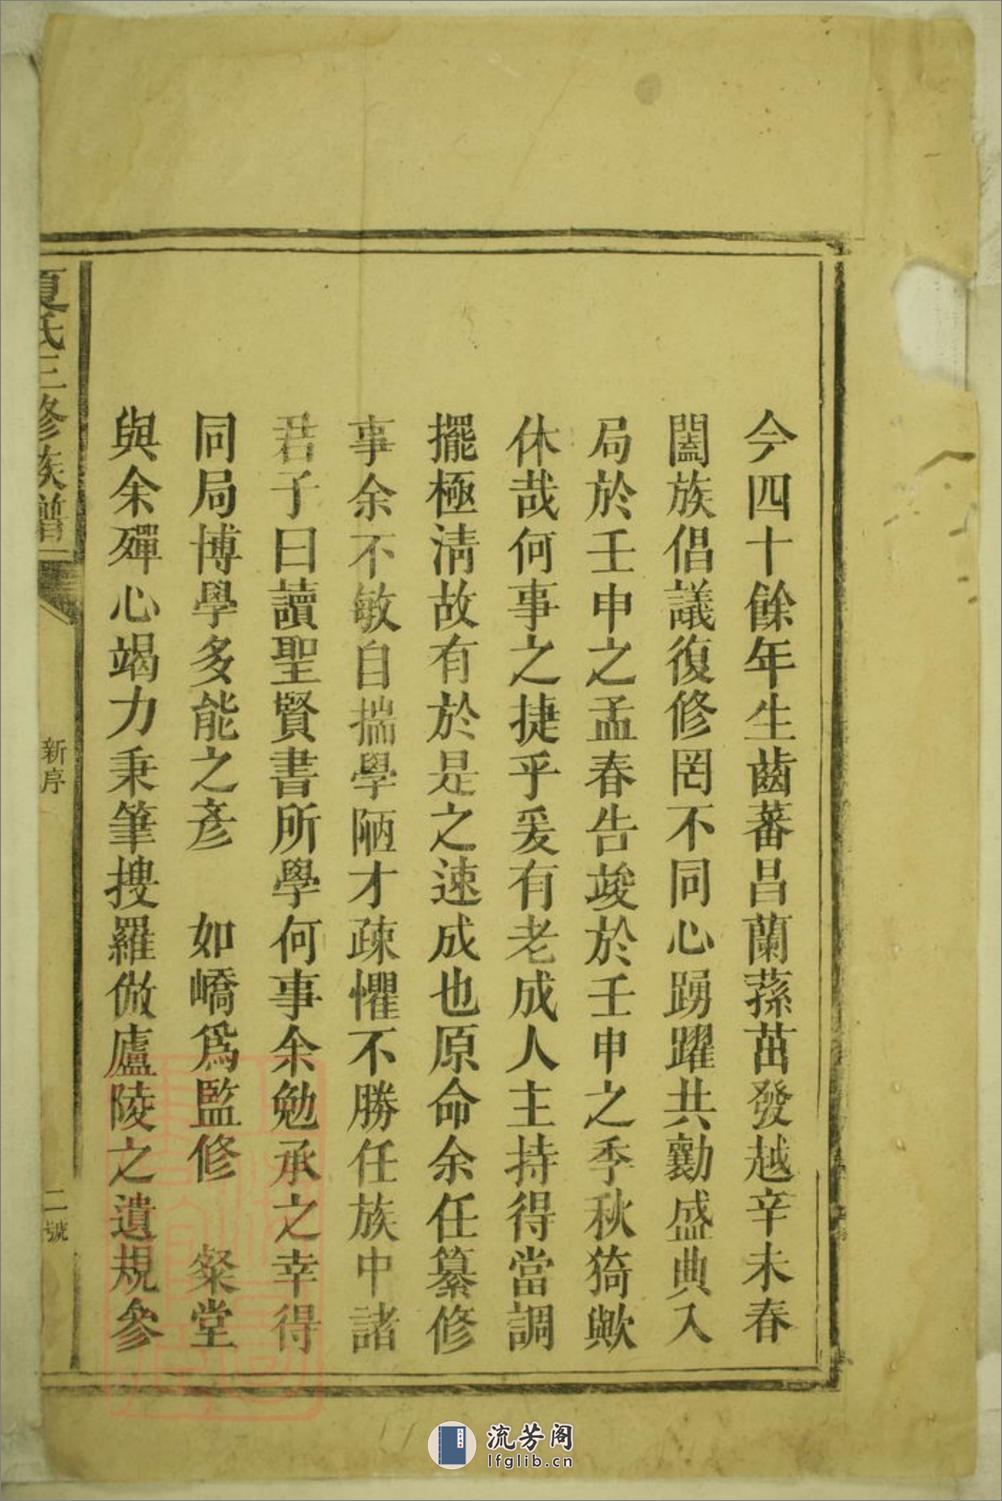 今四十餘年生齒蕃昌蘭蓀茁發越辛未春
闔族倡議復修罔不同心踴躍共勷盛典入
局於壬申之孟春告竣於壬申之季秋猗歟
休哉何事之捷乎爰有老成人主持得當調
擺極淸故有於是之速成也原命余任纂修
事余不敏自揣學陋才疎懼不勝任族中諸
君子曰讀聖賢書所學何事余勉承之幸得
同局博學多能之彥　如嶠爲監修　粲堂
與余殫心竭力秉筆搜羅倣廬陵之遺規參
夏氏三修族譜
新序
二號
流芳阁
lfglib.cn